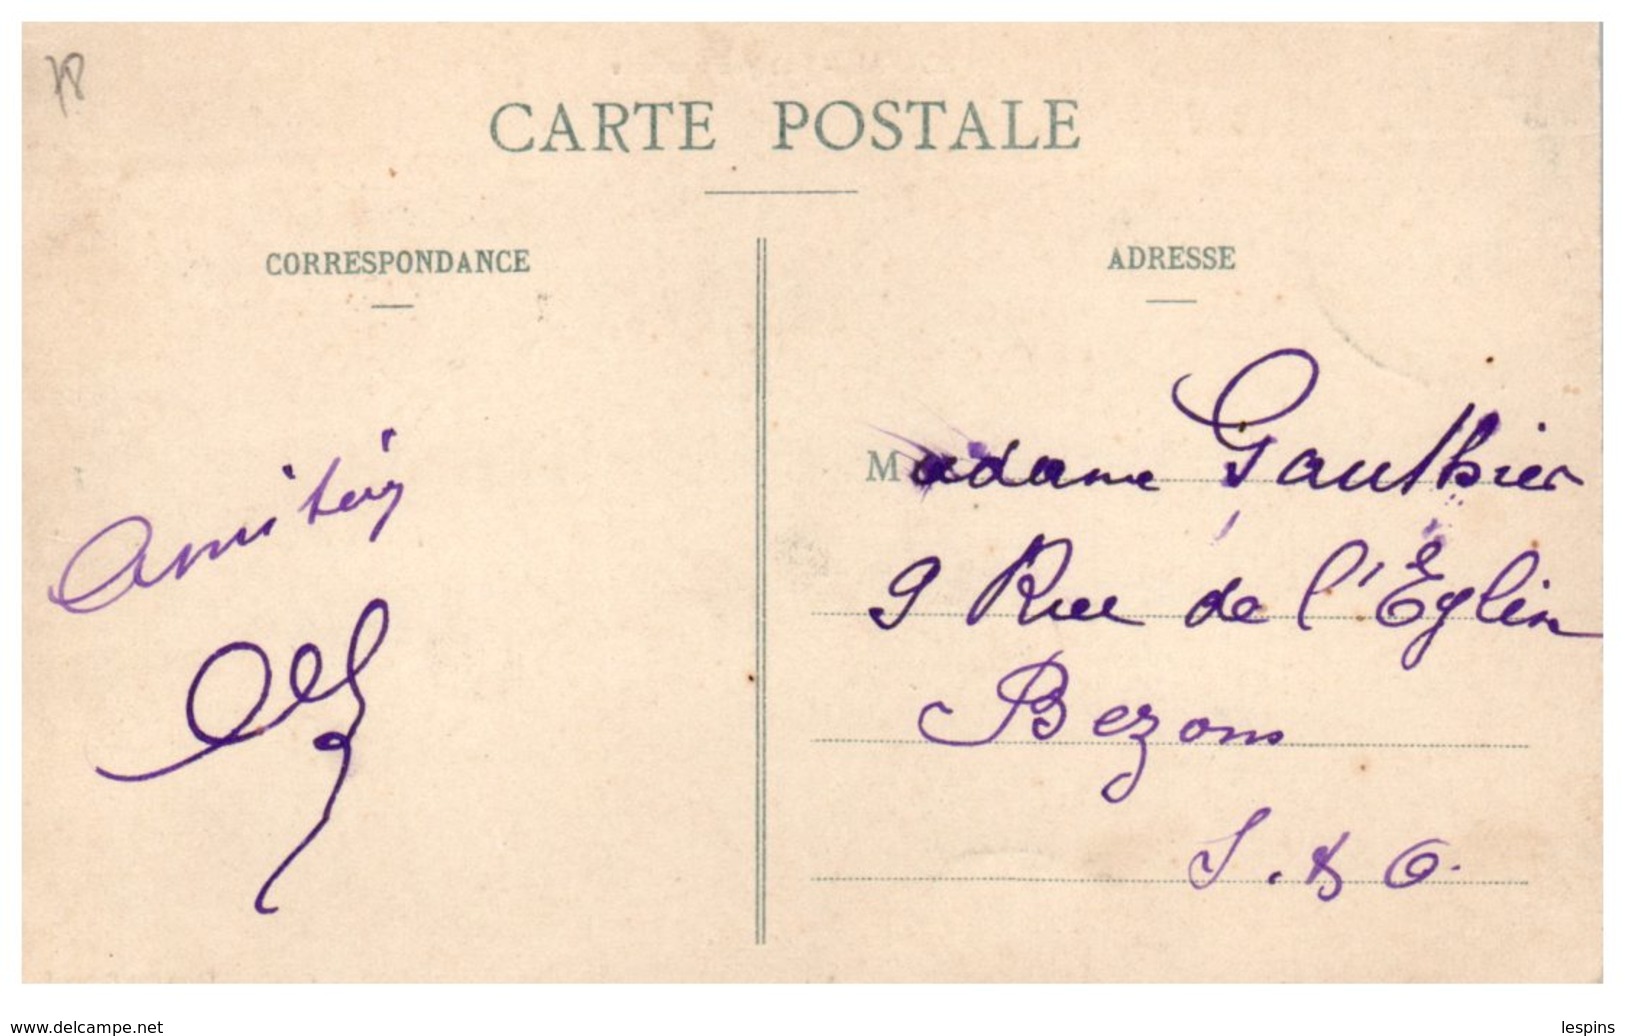 78
CARTE POSTALE
CORRESPONDANCE
ADRESSE
Amitiés
Madame Gauthier
9 Rue de l'Église
Bezons
S. & O.
www.delcampe.net
lespins